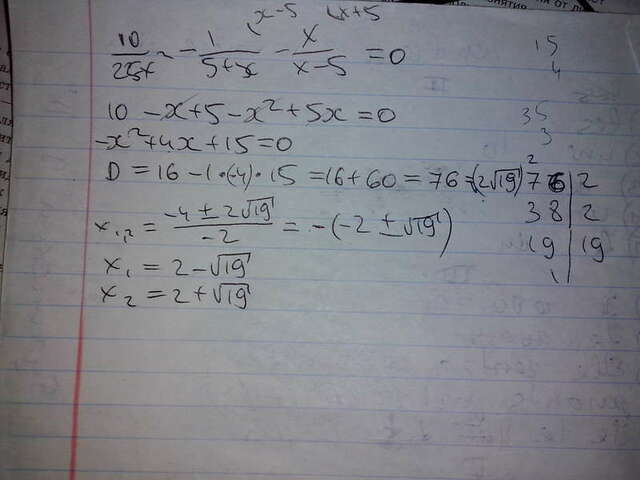 x-5 x+5
10/25+x² - 1/5+x - x/x-5 = 0
10 - x+5 - x²+5x = 0
-x²+4x+15=0
D = 16 - 1·(-4)·15 = 16+60 = 76 = (2√19)²
x₁,₂ = -4 ± 2√19 / -2 = -(-2 ± √19)
x₁ = 2-√19
x₂ = 2+√19
15
4
35
3
76 | 2
38 | 2
19 | 19
1